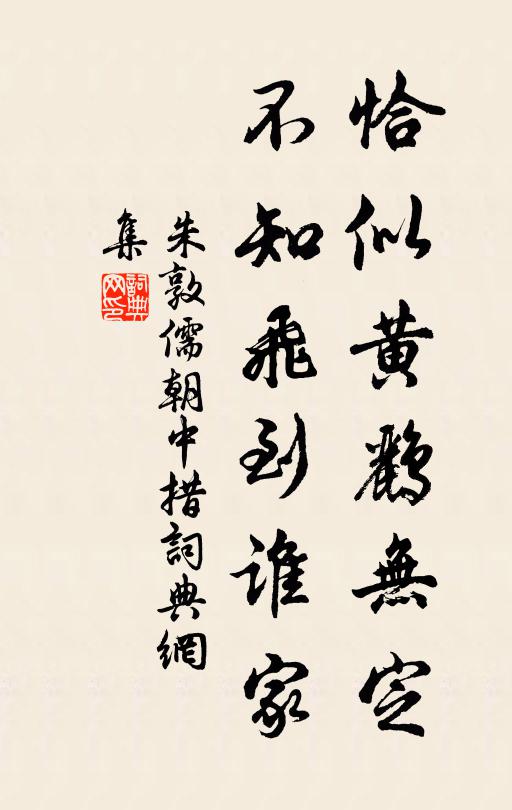 恰似黄鸝無定
不知飛到誰家
朱敦儒朝中措詞典網
集
詞典
网印